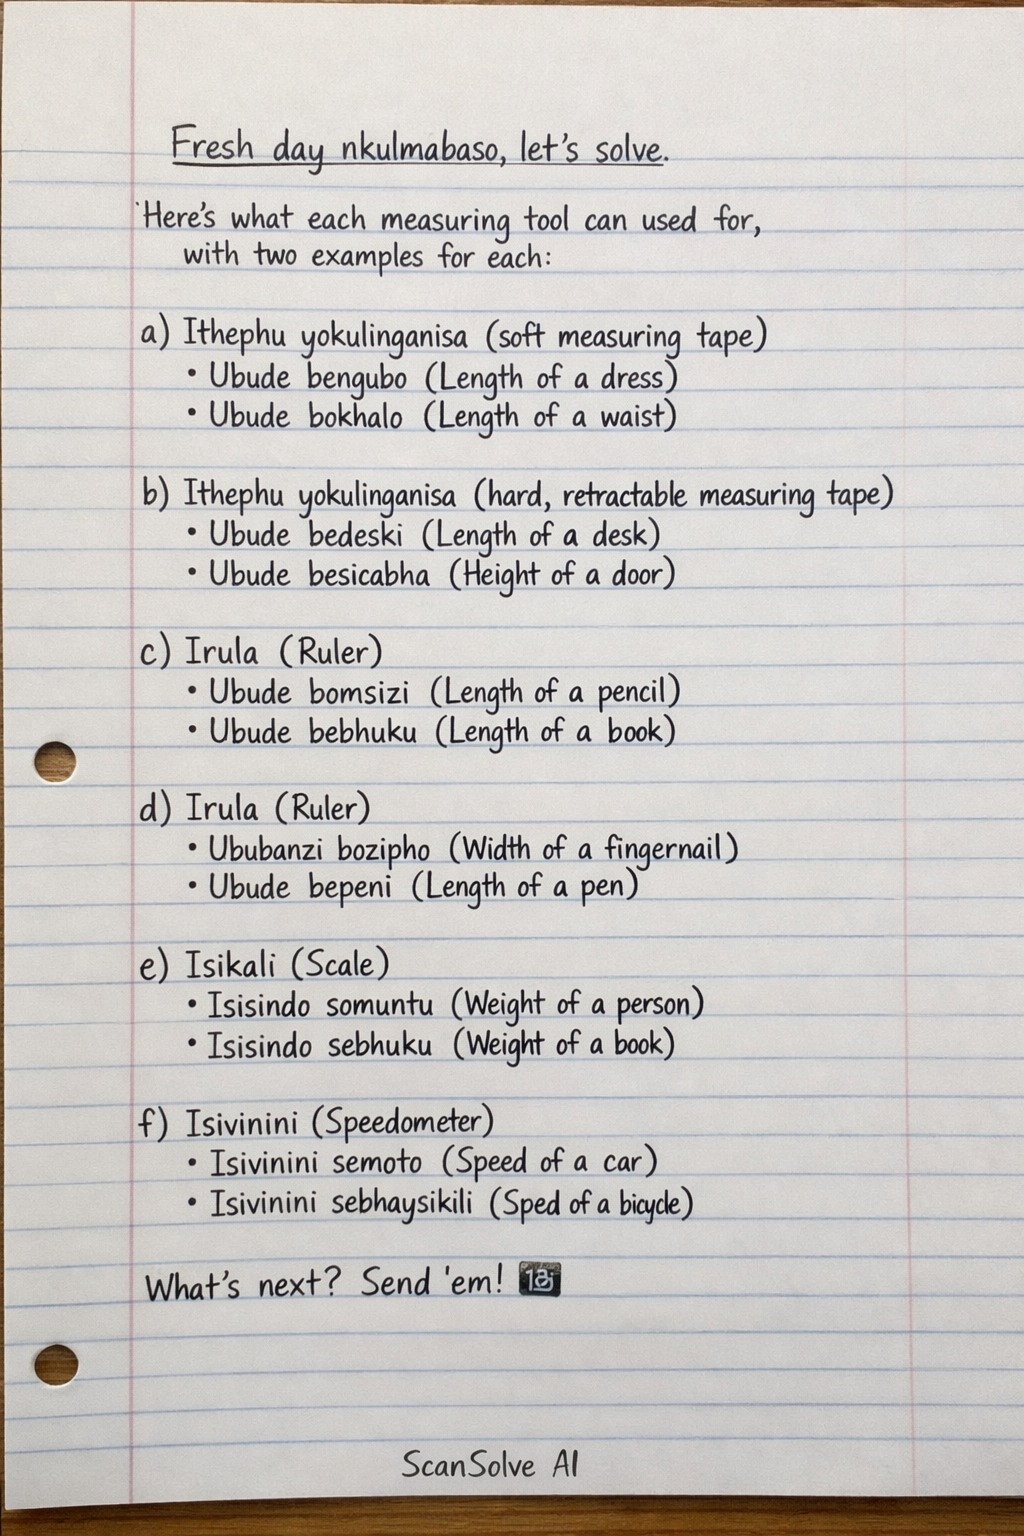 Fresh day nkulmabaso, let's solve.
Here's what each measuring tool can used for,
with two examples for each:
a) Ithephu yokulinganisa (soft measuring tape)
• Ubude bengubo (Length of a dress)
• Ubude bokhalo (Length of a waist)
b) Ithephu yokulinganisa (hard, retractable measuring tape)
• Ubude bedeski (Length of a desk)
• Ubude besicabha (Height of a door)
c) Irula (Ruler)
• Ubude bomsizi (Length of a pencil)
• Ubude bebhuku (Length of a book)
d) Irula (Ruler)
• Ububanzi bozipho (Width of a fingernail)
• Ubude bepeni (Length of a pen)
e) Isikali (Scale)
• Isisindo somuntu (Weight of a person)
• Isisindo sebhuku (Weight of a book)
f) Isivinini (Speedometer)
• Isivinini semoto (Speed of a car)
• Isivinini sebhaysikili (Sped of a bicycle)
What's next? Send 'em!
ScanSolve AI